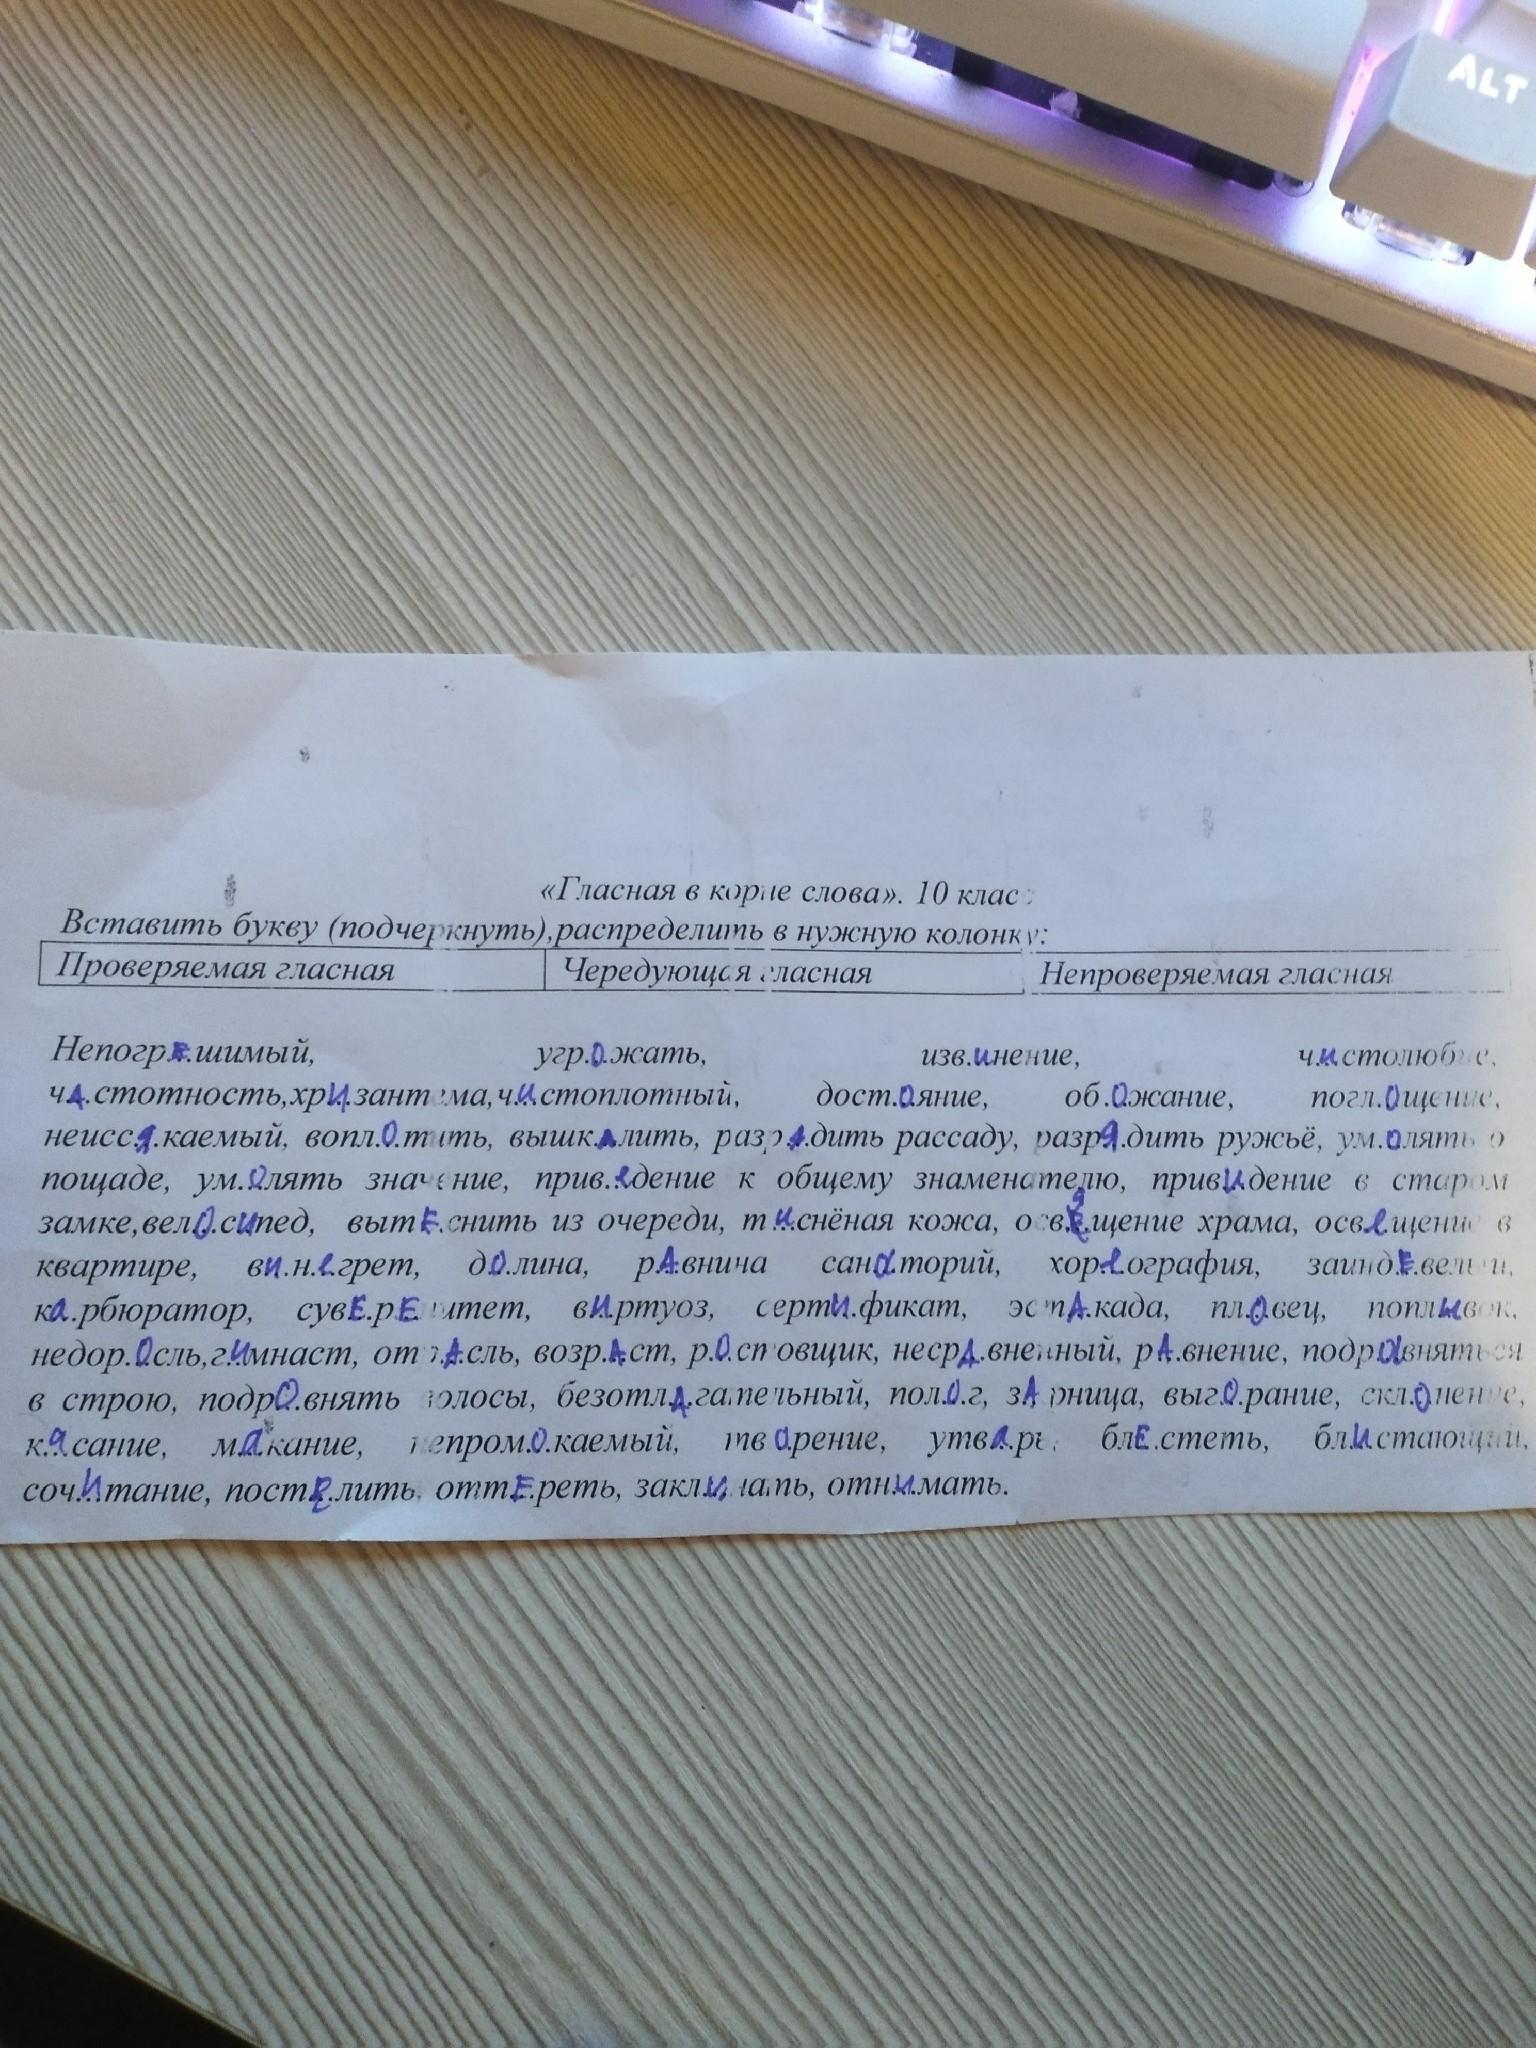 ALT
«Гласная в корне слова». 10 класс
Вставить букву (подчеркнуть),распределить в нужную колонку:
Проверяемая гласная Чередующаяся гласная Непроверяемая гласная
НепогрЕ.шимый, угр.О.жать, изв.инение, ч.истолюбие,
чА.стотность,хрИ.зантема,ч.истоплотный, дост.ояние, об.Ожание, погл.Ощение,
неисс.я.каемый, вопл.О.тить, вышк.алить, разр.а.дить рассаду, разря.дить ружьё, ум.олять о
пощаде, ум.Олять значение, прив.едение к общему знаменателю, привИ.дение в старом
замке,вел.О.сипед, вытЕ.снить из очереди, т.иснёная кожа, освя.щение храма, осве.щение в
квартире, ви.н.егрет, до.лина, рА.внина санаторий, хор.еография, заиндЕ.велый,
ка.рбюратор, сувЕ.рЕнитет, вИ.ртуоз, сертИ.фикат, эстА.када, пл.Овец, поплывок,
недор.Осль,г.имнаст, отр.Асль, возр.Аст, р.Остовщик, несрА.вненный, рА.внение, подравняться
в строю, подрО.внять волосы, безотлА.гательный, пол.О.г, зА.рница, выгО.рание, скл.Онение,
к.а.сание, ма.кание, непром.О.каемый, творение, утва.рь, блЕ.стеть, бл.Истающий,
соч.Итание, постЕ.лить, оттЕ.реть, закл.инать, отн.имать.